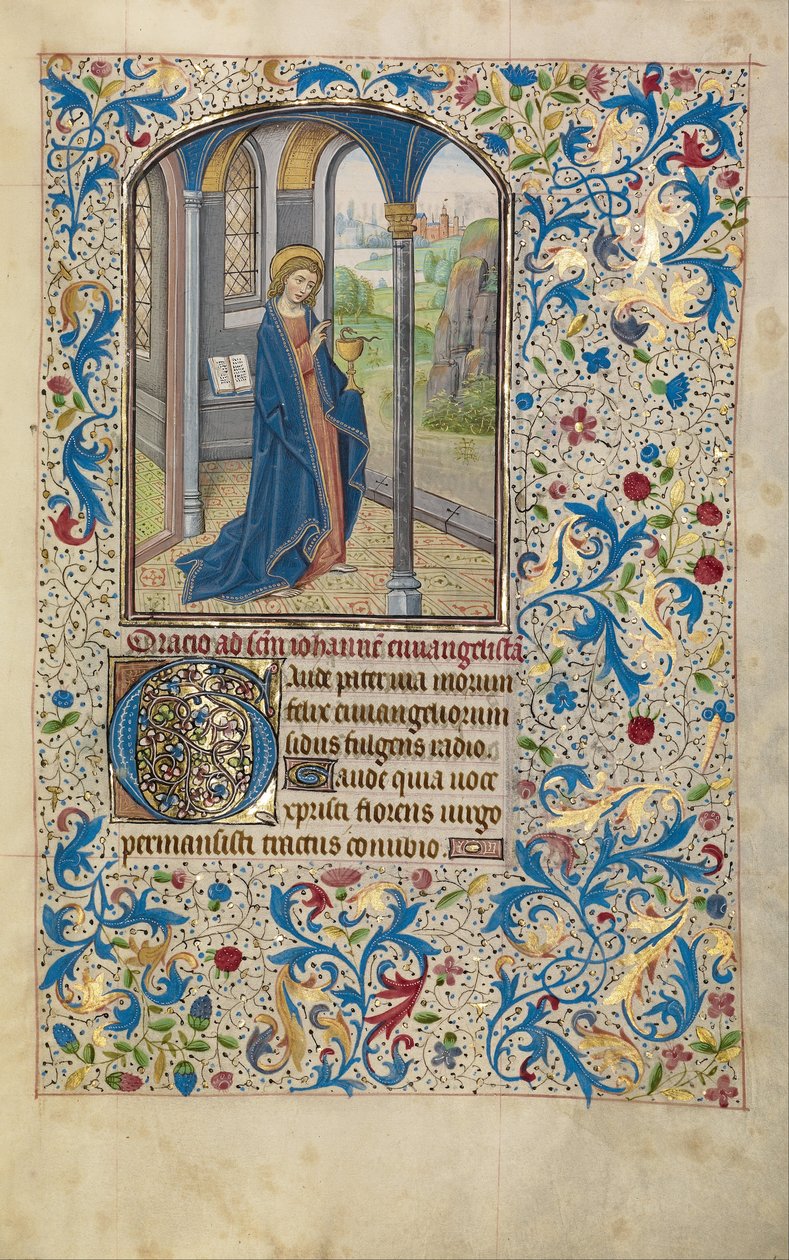 Oracio ad scm̄ iohannē euuangelistā
Gaude pater uia morum
felix euuangeliorum
sidus fulgens radio.
Gaude quia uoce
xpristi florens uirgo
permansisti tractus conubio.